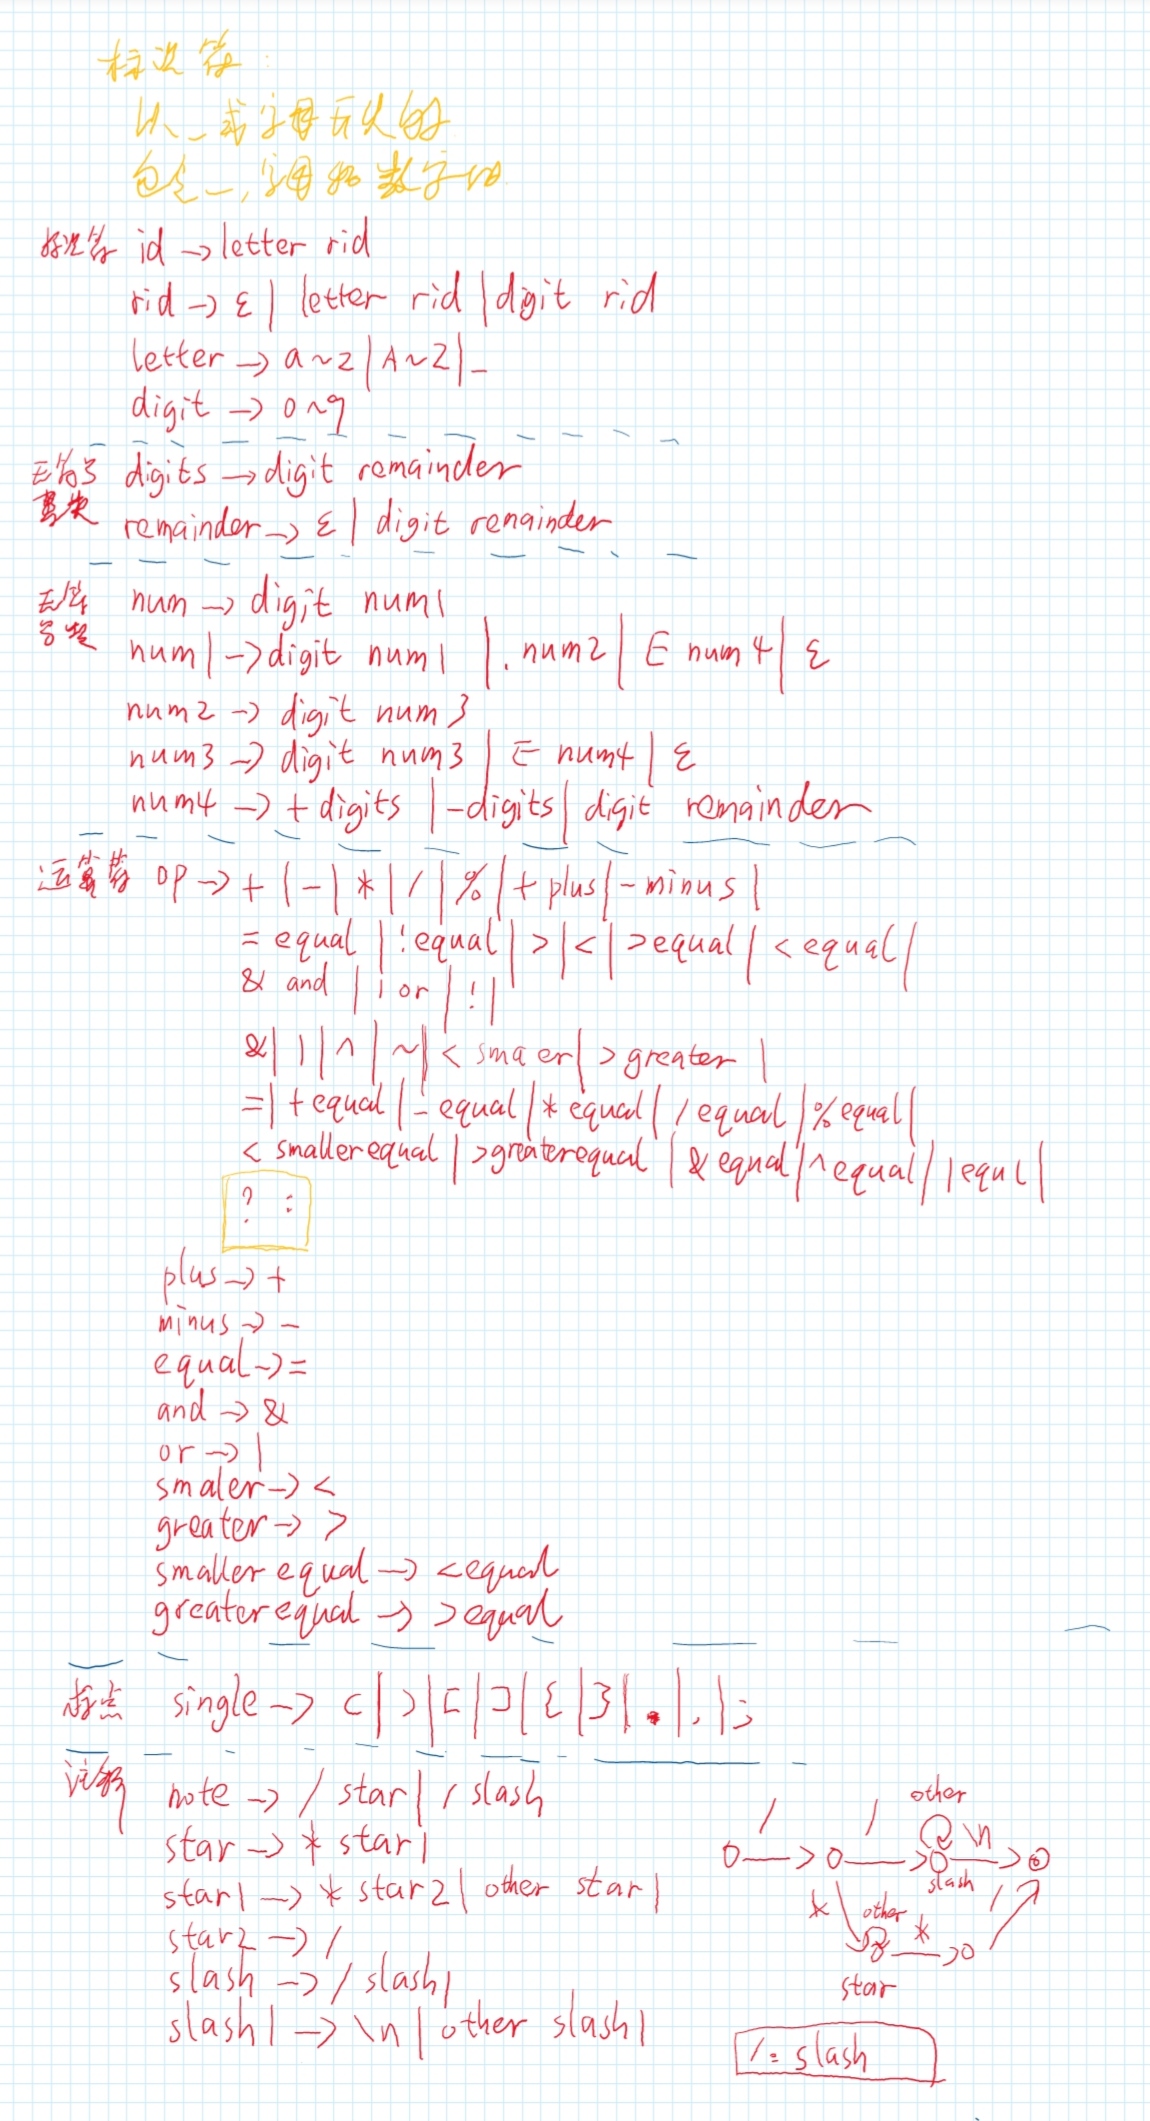 标识符:
以_或字母开头的
包含_,字母和数字的
标识符 id → letter rid
rid → ε | letter rid | digit rid
letter → a~z | A~Z | _
digit → 0~9
无符号 digits → digit remainder
整数 remainder → ε | digit renainder
无符号 num → digit num1
num1 → digit num1 | . num2 | E num4 | ε
num2 → digit num3
num3 → digit num3 | E num4 | ε
num4 → + digits | -digits | digit remainder
运算符 op → + | - | * | / | % | + plus | - minus |
= equal | !equal | > | < | >equal | < equal |
& and | | or | ! |
& | | | ^ | ~ | < smaer | > greater |
= | + equal | - equal | * equal | / equal | % equal |
< smallerequal | >greaterequal | & equal | ^ equal | | equl |
? :
plus → +
minus → -
equal → =
and → &
or → |
smaler → <
greater → >
smaller equal → < equal
greater equal → > equal
标点 single → ( | ) | [ | ] | { | } | . | , | ;
注释 note → / star | / slash
star → * star1
star1 → * star2 | other star1
star2 → /
slash → / slash1
slash1 → \n | other slash1
other
/ / \n
slash
* other * /
star
/ = slash